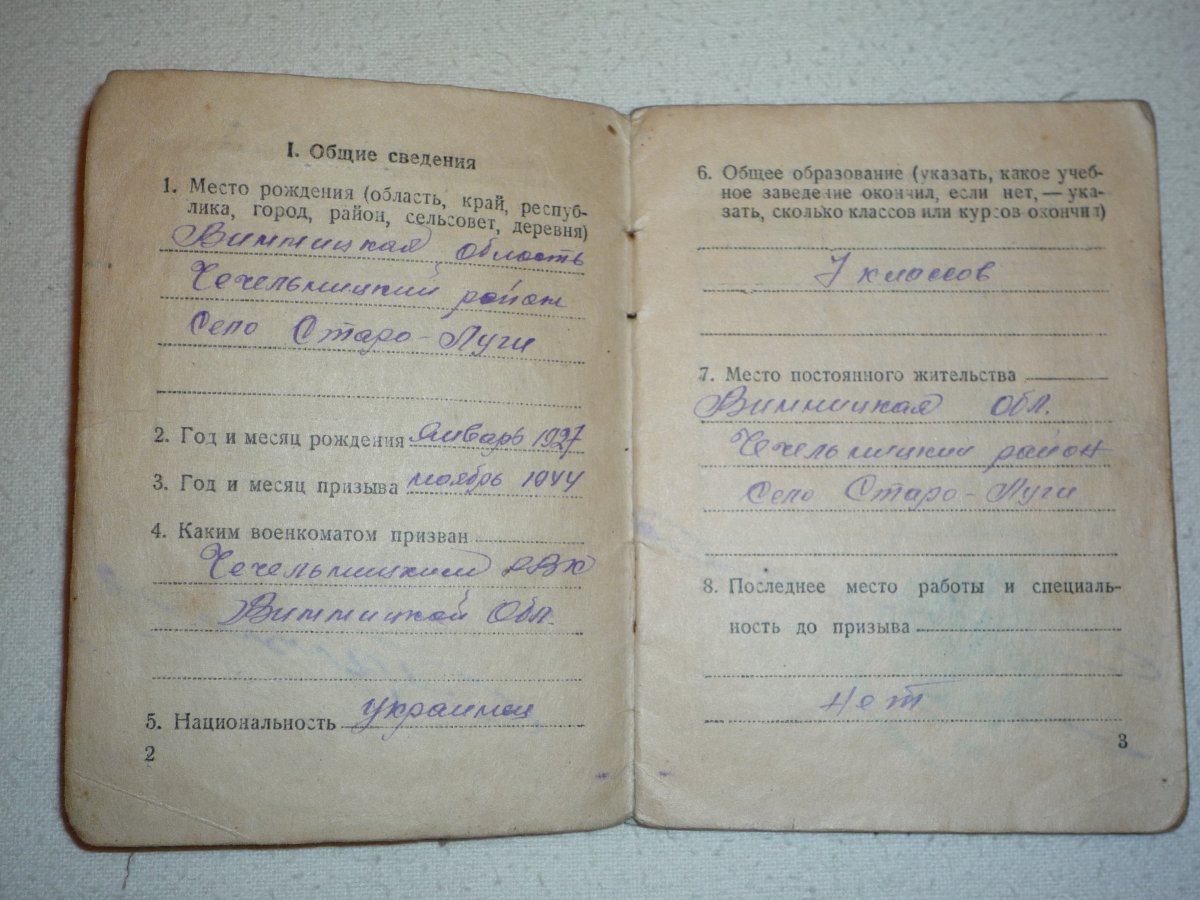 I. Общие сведения
1. Место рождения (область, край, респуб-
лика, город, район, сельсовет, деревня)
Винницкая область
Чечельницкий район
Село Старо-Луги
2. Год и месяц рождения январь 1927
3. Год и месяц призыва ноябрь 1944
4. Каким военкоматом призван
Чечельницким РВК
Винницкой Обл.
5. Национальность украинец
2
6. Общее образование (указать, какое учеб-
ное заведение окончил, если нет, — ука-
зать, сколько классов или курсов окончил)
7 классов
7. Место постоянного жительства
Винницкая Обл.
Чечельницкий район
Село Старо-Луги
8. Последнее место работы и специаль-
ность до призыва
нет
3